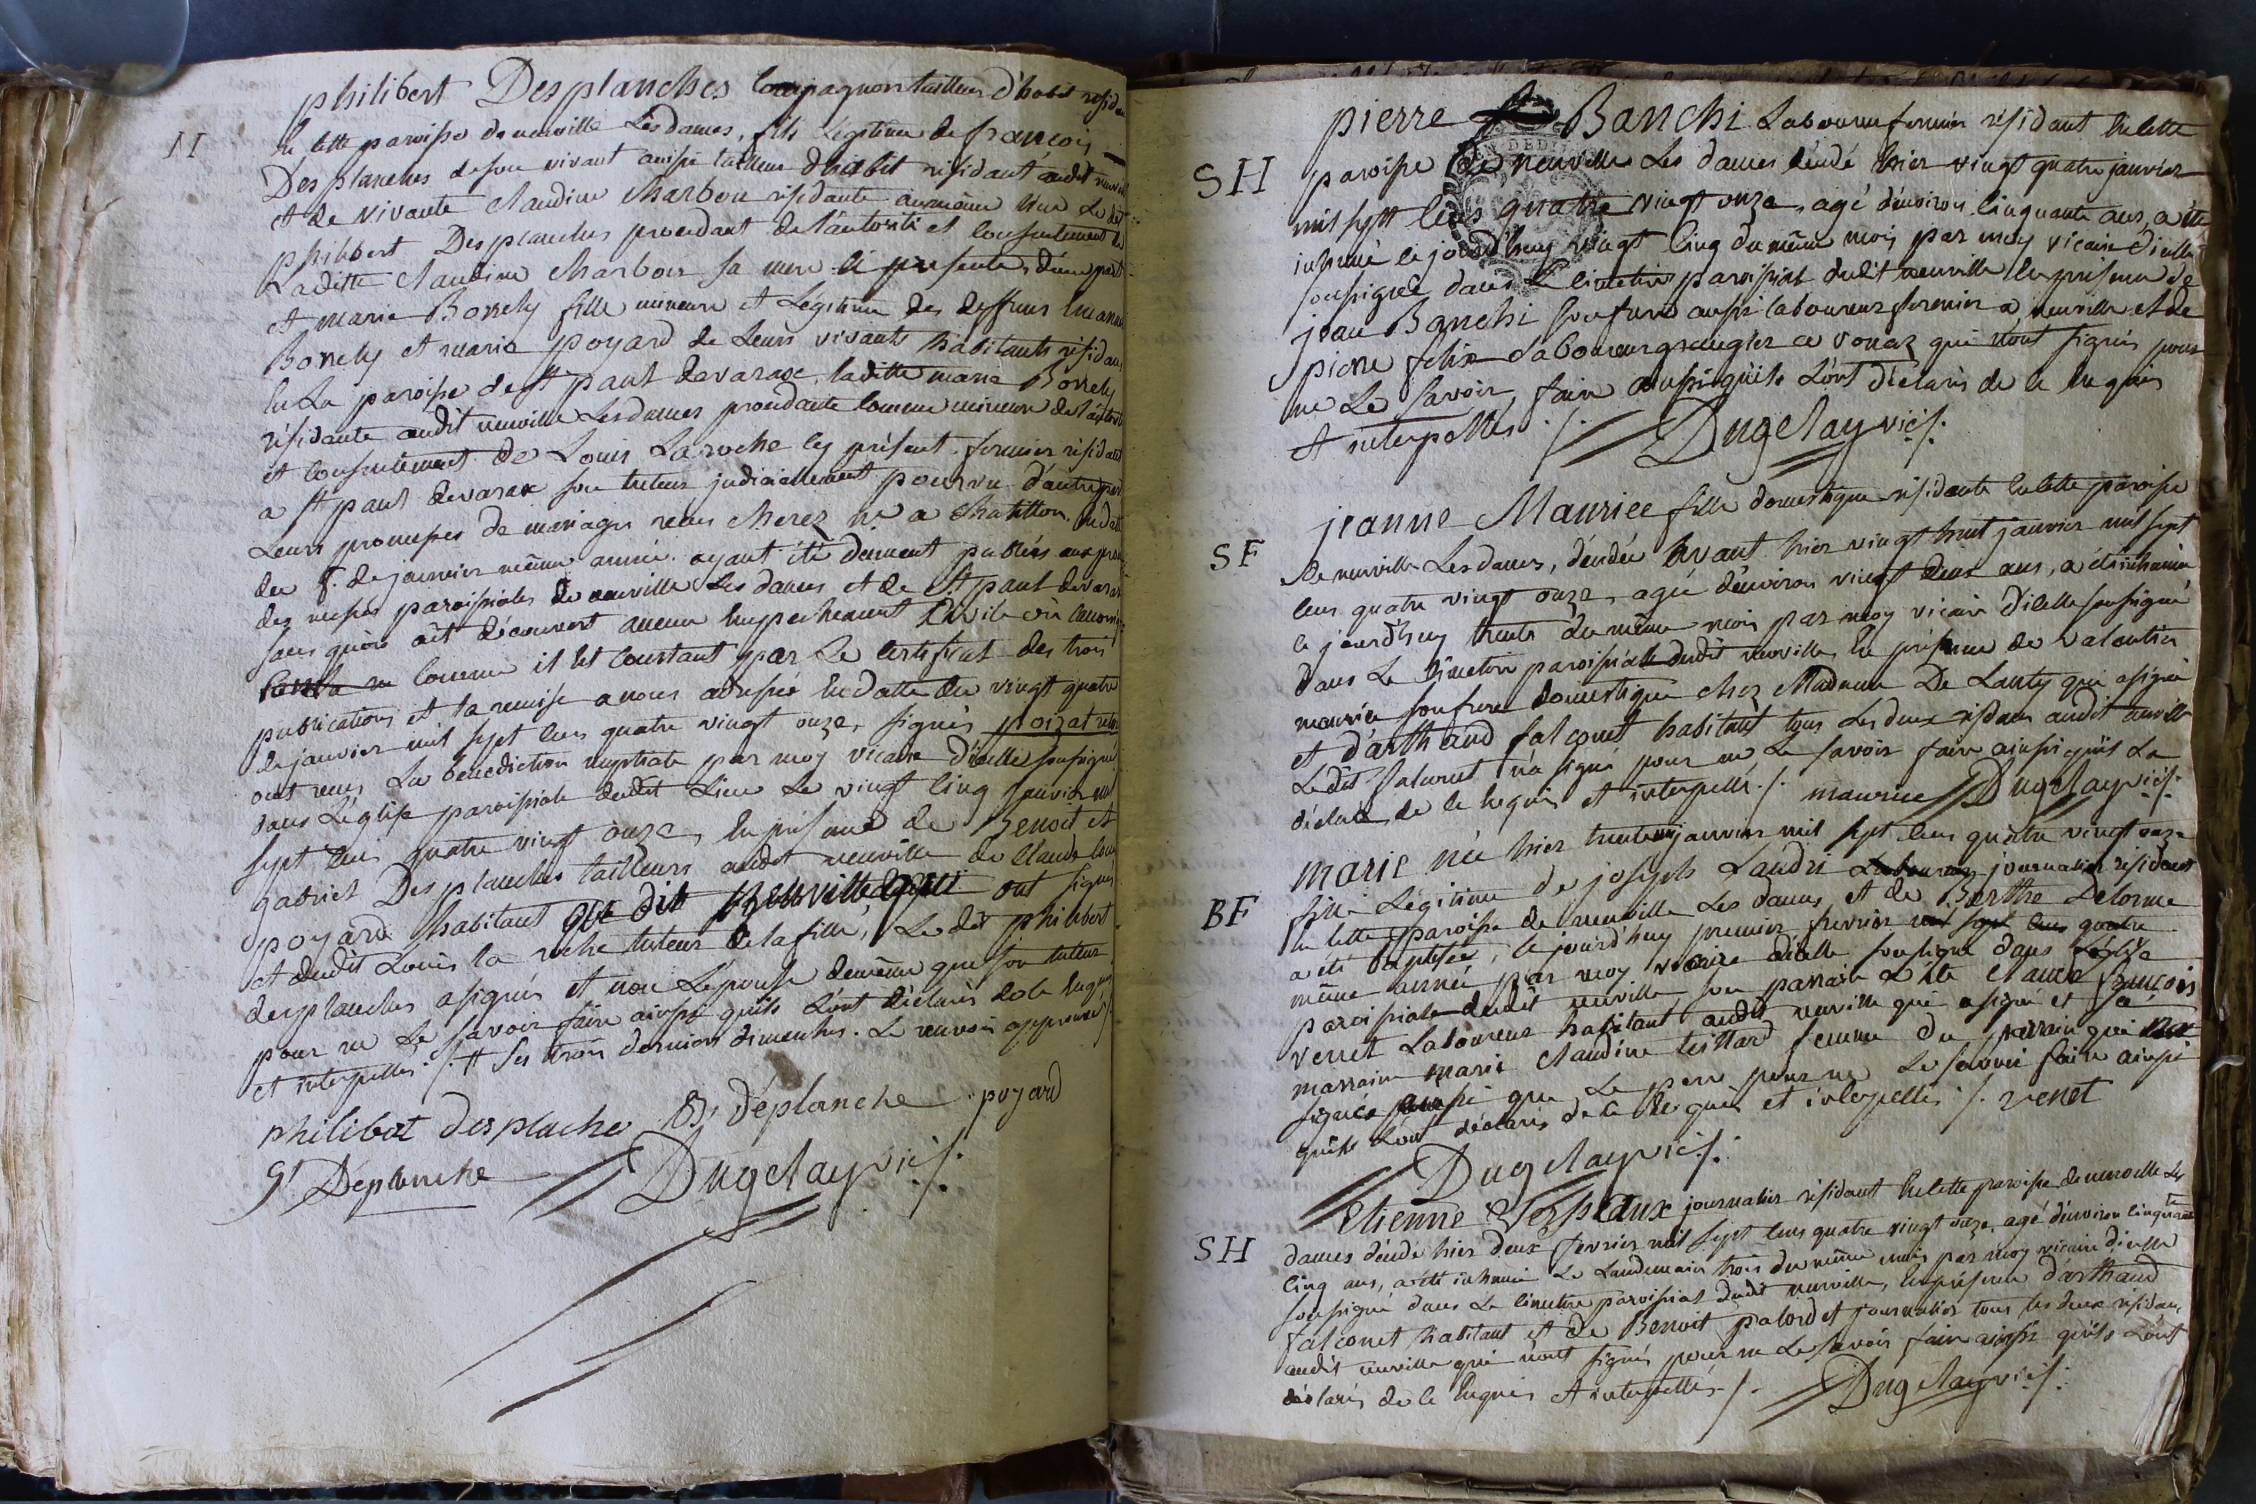 M
philibert Desplanches Compagnon tailleur d'habit résidant
en cette paroisse de neuville Les dames, fils Légitime de françois
Desplanches de son vivant aussi tailleur d'habit résidant audit neuville
et de vivante Claudine Charbon résidante au même lieu Le dit
philibert Desplanches procedant de L'autorité et Consentement de
Laditte Claudine Charbon sa mere ici présente, d'une part
et marie Borrely fille mineure et Légitime des deffunts
Borrely et marie poyard de Leurs vivants habitants résidans
en La paroisse de st paul devarax, laditte marie Borrely
résidante audit neuville Lesdames procedante comme mineure de L'autorité
et consentement de Louis Laroche icy présent fermier résidant
a st paul devarax son tuteur judiciellement pourvu d'autre part
Leurs promesses de mariages reçus cherez nre a Chatillon, en datte
du 8. de janvier même année ayant été dument publiés aux prones
des messes paroissiales de neuville Les dames et de st paul devarax
sans qu'on ait découvert aucun Empechement Civile ou Canonique
comme il Est Constant par le certificat des trois
publications et la remise a nous adressée En datte du vingt quatre
de janvier mil sept cens quatre vingt onze, signés poizat
ont reçus La bénédiction nuptiale par moy vicaire d'icelle soussigné
dans L'église paroissiale dudit Lieu Le vingt cinq janvier mil
sept cens quatre vingt onze, En présence de Benoit et
gabriel Desplanches tailleurs audit neuville de Claude
poyard habitant au dit Neuville qui ont signés
et dudit Louis la roche tuteur de la fille, Le dit philibert
desplanches a signés et non L'épouse de même que son tuteur
pour ne Le savoir faire ainsi qu'ils L'ont déclarés de ce Enquis
et interpellés ./. # les trois derniers dimanches. Le renvoi approuvé ./.
philibat desplache B, déplanche poyard
gl Déplanche Dugelay vic ./.
SH
pierre Banchi Laboureur fermier résidant En cette
paroisse de neuville Les dames décédé hier vingt quatre janvier
mil sept cens quatre vingt onze, agé d'environ cinquante ans, a été
inhumé ce jourd'huy vingt cinq du même mois par moy vicaire d'icelle
soussigné dans Le cimetiere paroissial dudit neuville En présence de
jean Banchi son frere aussi laboureur fermier a neuville et de
pierre felix Laboureur grangier a vonaz qui n'ont signés pour
ne Le savoir faire ainsi qu'ils L'ont déclarés de ce Enquis
et interpellés ./. Dugelay vic ./.
SF
jeanne Maurice fille domestique résidente En cette paroisse
de neuville Les dames, décédée avant hier vingt huit janvier mil sept
cens quatre vingt onze, agée d'environ vingt deux ans, a été inhumée
ce jourd'huy trente du même mois par moy vicaire d'icelle soussigné
dans Le cimetiere paroissiale dudit neuville, En présence de valentin
maurice son frere domestique chez Madame De Lanty qui a signé
et d'arthaud falconet habitant tous Les deux résidans audit neuville
Ledit falconet n'a signé pour ne Le savoir faire ainsi qu'il L'a
déclaré de ce Enquis et interpellé ./. maurice Dugelay vic ./.
BF
marie née hier trente un janvier mil sept cens quatre vingt onze
fille Légitime de joseph Landri journalier résidant
En cette paroisse de neuville Les dames et de Berthe Delorme
a été baptisée, ce jourd'huy premier fevrier mil sept cens quatre
même année par moy vicaire d'icelle soussigné dans L'église
paroissiale dudit neuville, son parrain a été Claude françois
verret Laboureur habitant audit neuville qui a signé et sa
marraine marie Claudine teillard femme du parrain qui n'a
signée que Le pere pour ne Le savoir faire ainsi
qu'ils L'ont déclarés de ce Enquis et interpellés ./. venet
Dugelay vic ./.
SH
Etienne journalier résidant En cette paroisse de neuville Les
dames décédé hier deux fevrier mil sept cens quatre vingt onze, agé d'environ cinquante
cinq ans, a été inhumé Le Landemain trois du même mois par moy vicaire d'icelle
soussigné dans Le cimetiere paroissial dudit neuville, En présence d'arthaud
falconet habitant et de Benoit palord et journalier tous les deux résidans
audit neuville qui n'ont signés pour ne Le savoir faire ainsi qu'ils L'ont
déclarés de ce Enquis et interpellés ./. Dugelay vic ./.